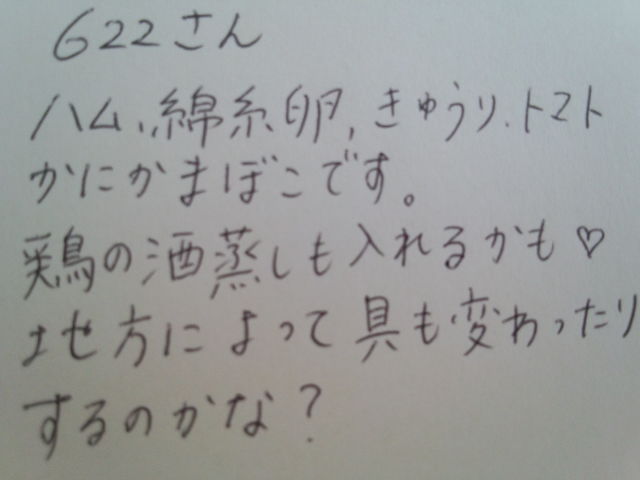 622さん
ハム、綿糸卵、きゅうり、トマト
かにかまぼこです。
鶏の酒蒸しも入れるかも♡
地方によって具も変わったり
するのかな?